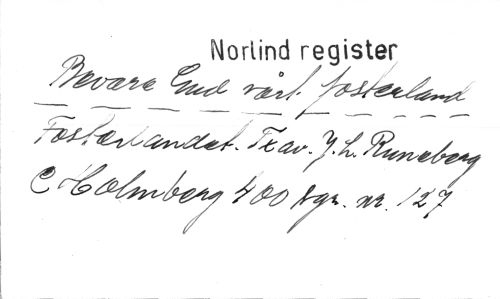 Norlind register
Bevare Gud vårt fosterland
Fosterlandet. Tx av. J. L. Runeberg
C Holmberg 400 sgr. nr. 127